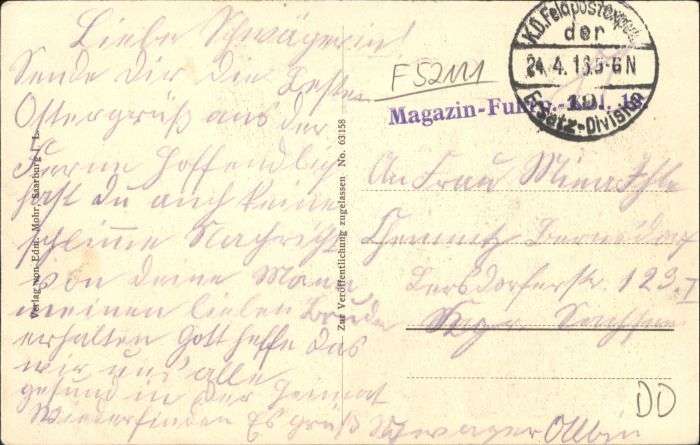 Liebe Schwägerin!
Sende dir die Besten
Ostergrüß aus der
Ferne Hoffendlich
hast du auch keine
schlimme Nachricht
von deine Mann
meinen lieben Bruder
erhalten Gott helfe das
wir uns alle
gesund in der Heimat
Wiederfinden Es grüß Schwager Albin
Verlag von Edm. Mohr, Saarburg i. L.
Zur Veröffentlichung zugelassen No. 63158
F52111
K.D. Feldpostexped.
der
24.4.16.5-6N
19.
Ersatz-Division
Magazin-Fuhrp.-Kol. 19.
An Frau Mina
Chemnitz Bernsdorf
Bersdorferstr. 123. I
Kgr. Sachsen
DD